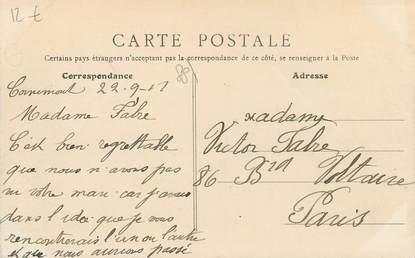 12 €
CARTE POSTALE
Certains pays étrangers n'acceptant pas la correspondance de ce côté, se renseigner à la Poste
Correspondance
Cornimont 22-9-07
Madame Fabre
C'est bien regrettable
que nous n'avons pas
vu votre mari car j'avais
dans l'idée que je vous
rencontrerais l'un ou l'autre
et que nous aurions passé
Adresse
Madame
Victor Fabre
86 Bd Voltaire
Paris